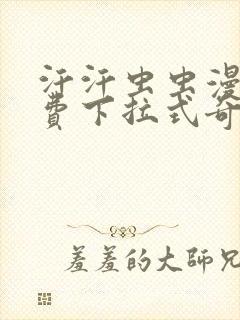 汗汗虫虫漫
费下拉式奇
羞羞的大师兄